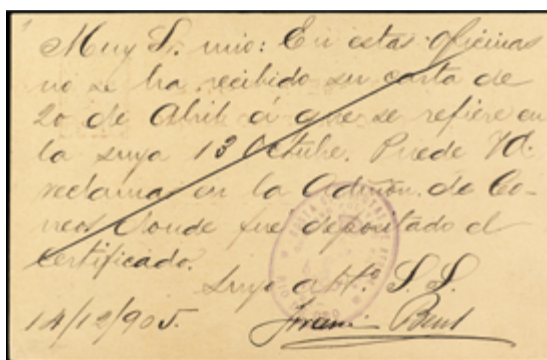 Muy Sr. mio: En estas oficinas
no se ha recibido su carta de
20 de Abril á que se refiere en
la suya 13 Octubre. Puede Vd.
reclamar en la Admón. de Co-
rreos donde fue depositado el
certificado.
Suyo att.º S. S.
14/12/905.